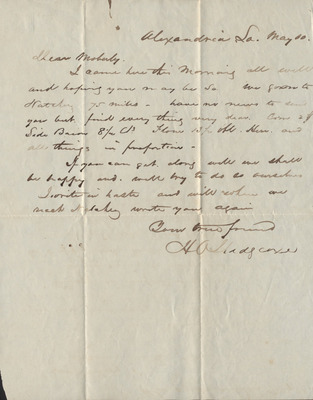 Alexandria La. May 20.
Dear Moberly.
I came here this Morning all well
and hoping you may be So we go on to
Natchez 75 miles - have no news to
you but find every thing very dear Corn
Side Bacon Flour
all things in proportion -
If you can get along well we shall
be happy and will try to do so ourselves
I write in haste and will when we
reach Natchez write you again
Your true friend
H